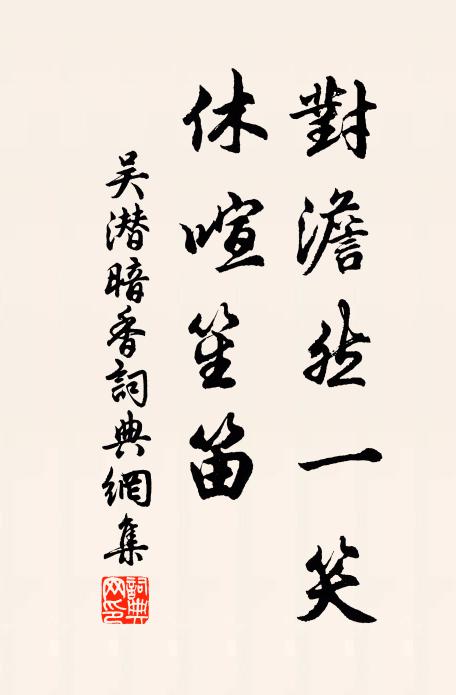 對澹然一笑
休喧笙笛
吴潜暗香詞典網集
詞典网印